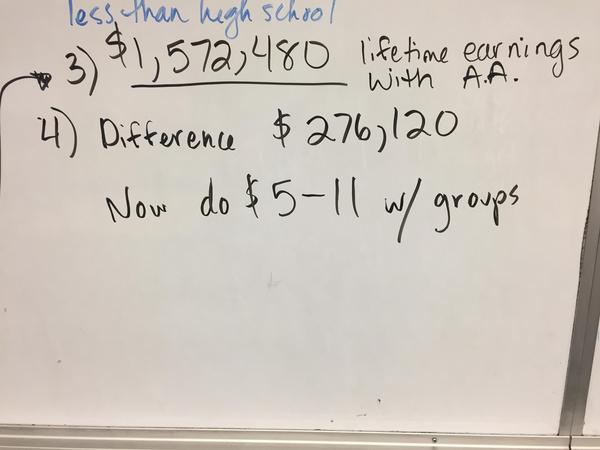 less than high school
3) $1,572,480 lifetime earnings
with A.A.
4) Difference $276,120
Now do $5-11 w/ groups